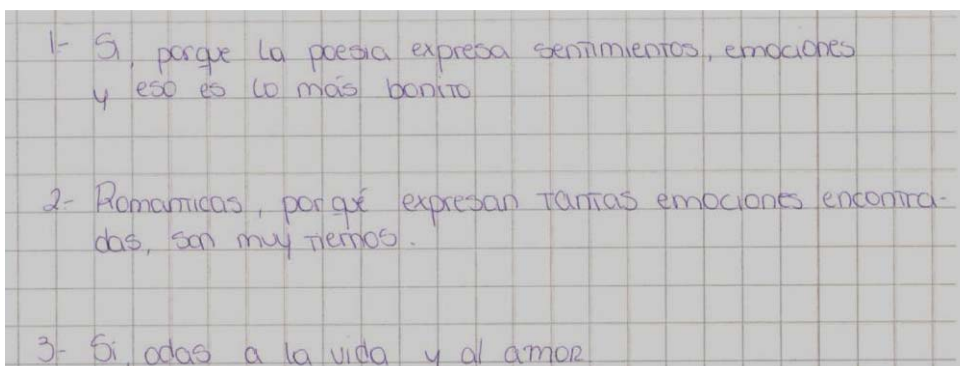 1- Si, porque la poesia expresa sentimientos, emociones
y eso es lo más bonito
2- Romanticas, porqué expresan tantas emociones encontra-
das, son muy tiernos.
3- Si, odas a la vida y al amor